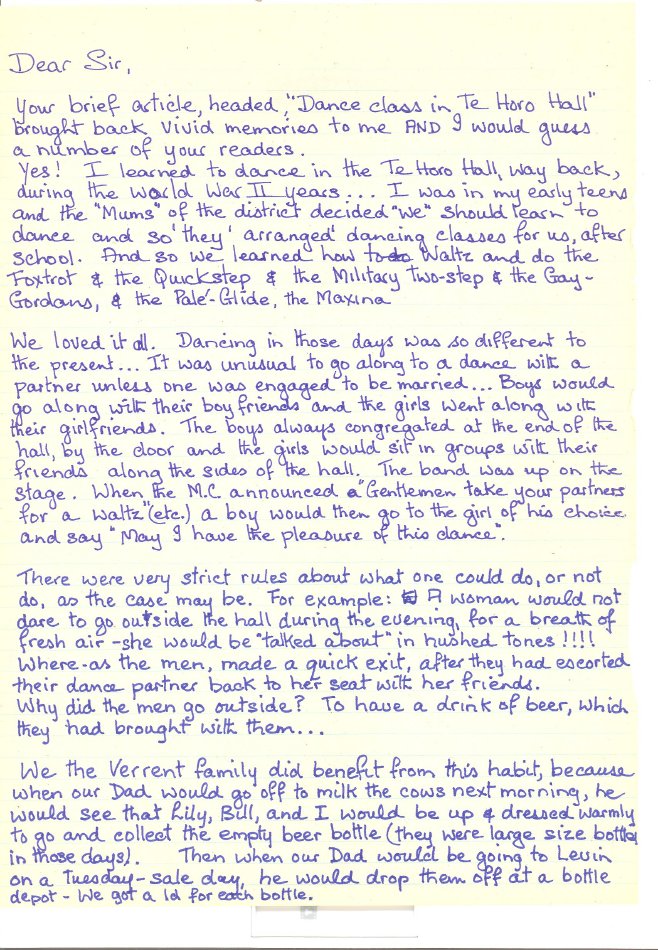 Dear Sir,
Your brief article, headed, "Dance class in Te Horo Hall"
brought back vivid memories to me AND I would guess
a number of your readers.
Yes! I learned to dance in the Te Horo Hall, way back,
during the World War II years... I was in my early teens
and the "Mums" of the district decided "we" should learn to
dance and so 'they' arranged dancing classes for us, after
school. And so we learned how to do Waltz and do the
Foxtrot & the Quickstep & the Military Two-step & the Gay-
Gordons, & the Pale'-Glide, the Maxina
We loved it all. Dancing in those days was so different to
the present... It was unusual to go along to a dance with a
partner unless one was engaged to be married... Boys would
go along with their boyfriends and the girls went along with
their girlfriends. The boys always congregated at the end of the
hall, by the door and the girls would sit in groups with their
friends along the sides of the hall. The band was up on the
stage. When the M.C. announced a "Gentlemen take your partners
for a waltz" (etc.) a boy would then go to the girl of his choice
and say "May I have the pleasure of this dance".
There were very strict rules about what one could do, or not
do, as the case may be. For example: A woman would not
dare to go outside the hall during the evening, for a breath of
fresh air - she would be "talked about" in hushed tones !!!!
Where-as the men, made a quick exit, after they had escorted
their dance partner back to her seat with her friends.
Why did the men go outside? To have a drink of beer, which
they had brought with them...
We the Verrent family did benefit from this habit, because
when our Dad would go off to milk the cows next morning, he
would see that Lily, Bill, and I would be up & dressed warmly
to go and collect the empty beer bottle (they were large size bottles
in those days). Then when our Dad would be going to Levin
on a Tuesday - sale day, he would drop them off at a bottle
depot - We got a 1d for each bottle.